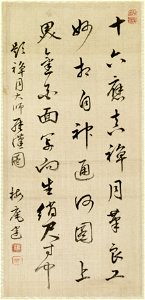 十六應真禪月筆良工
妙相自神通何圖上
界金色面寫向生綃尺寸中
題禪月大師羅漢圖 梅庵